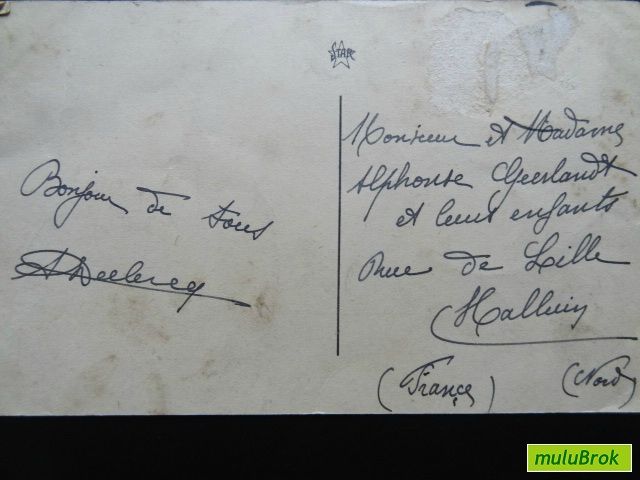 STAR
Bonjour de tous
A Declercq
Monsieur et Madame
Alphonse Geerlandt
et leurs enfants
Rue de Lille
Halluin
(France) (Nord)
muluBrok